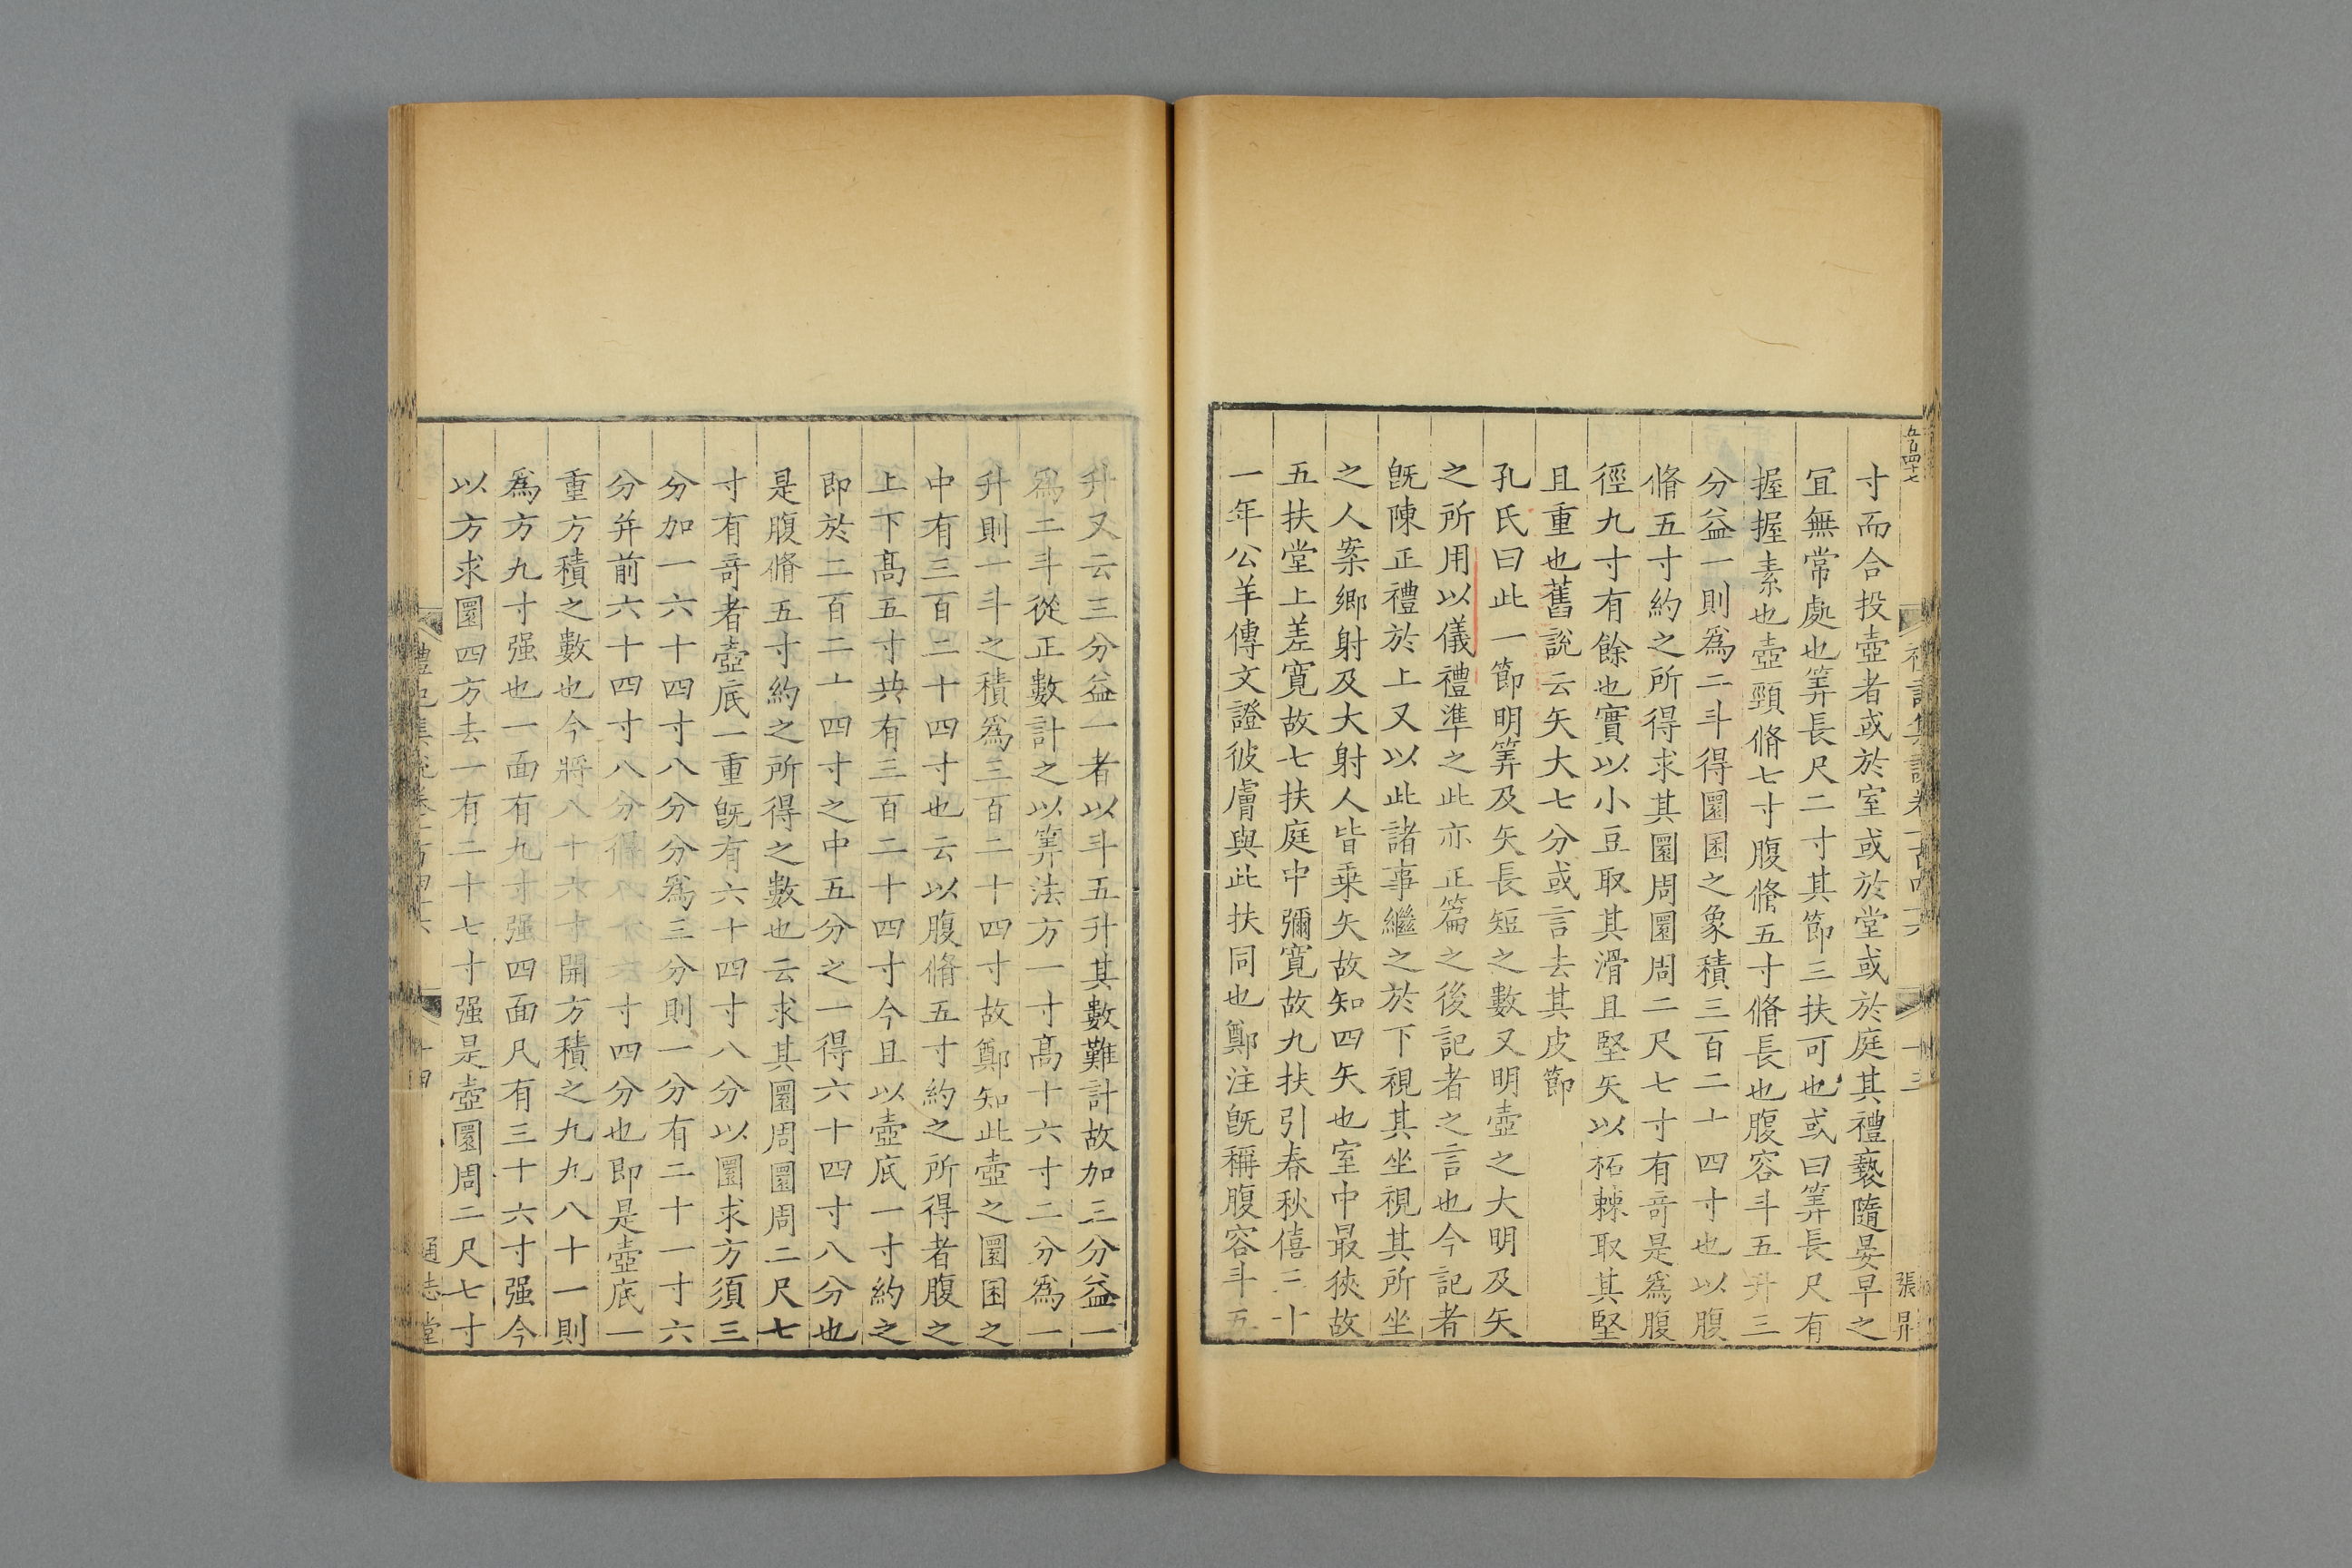 五百四十七
禮記集說卷一百四十六
十三
張昇
寸而合投壺者或於室或於堂或於庭其禮䙝隨晏早之
宜無常處也筭長尺二寸其節三扶可也或曰筭長尺有
握握素也壺頸脩七寸腹脩五寸脩長也腹容斗五升三
分益一則爲二斗得圜囷之象積三百二十四寸也以腹
脩五寸約之所得求其圜周圜周二尺七寸有奇是爲腹
徑九寸有餘也實以小豆取其滑且堅矢以柘棘取其堅
且重也舊說云矢大七分或言去其皮節
孔氏曰此一節明筭及矢長短之數又明壺之大明及矢
之所用以儀禮準之此亦正篇之後記者之言也今記者
旣陳正禮於上又以此諸事繼之於下視其坐視其所坐
之人案鄉射及大射人皆乗矢故知四矢也室中最狹故
五扶堂上差寛故七扶庭中彌寛故九扶引春秋僖三十
一年公羊傳文證彼膚與此扶同也鄭注旣稱腹容斗五
升又云三分益一者以斗五升其數難計故加三分益一
爲二斗從正數計之以筭法方一寸髙十六寸二分爲一
升則一斗之積爲三百二十四寸故鄭知此壺之圜囷之
中有三百二十四寸也云以腹脩五寸約之所得者腹之
上下髙五寸共有三百二十四寸今且以壺底一寸約之
即於三百二十四寸之中五分之一得六十四寸八分也
是腹脩五寸約之所得之數也云求其圜周圜周二尺七
寸有奇者壺底一重旣有六十四寸八分以圜求方須三
分加一六十四寸八分分爲三分則一分有二十一寸六
分并前六十四寸八分得八十六寸四分也即是壺底一
重方積之數也今將八十六寸開方積之九九八十一則
爲方九寸强也一面有九寸强四面凡有三十六寸强今
以方求圜四方去一有二十七寸强是壺圜周二尺七寸
禮記集說卷一百四十六
十四
通志堂